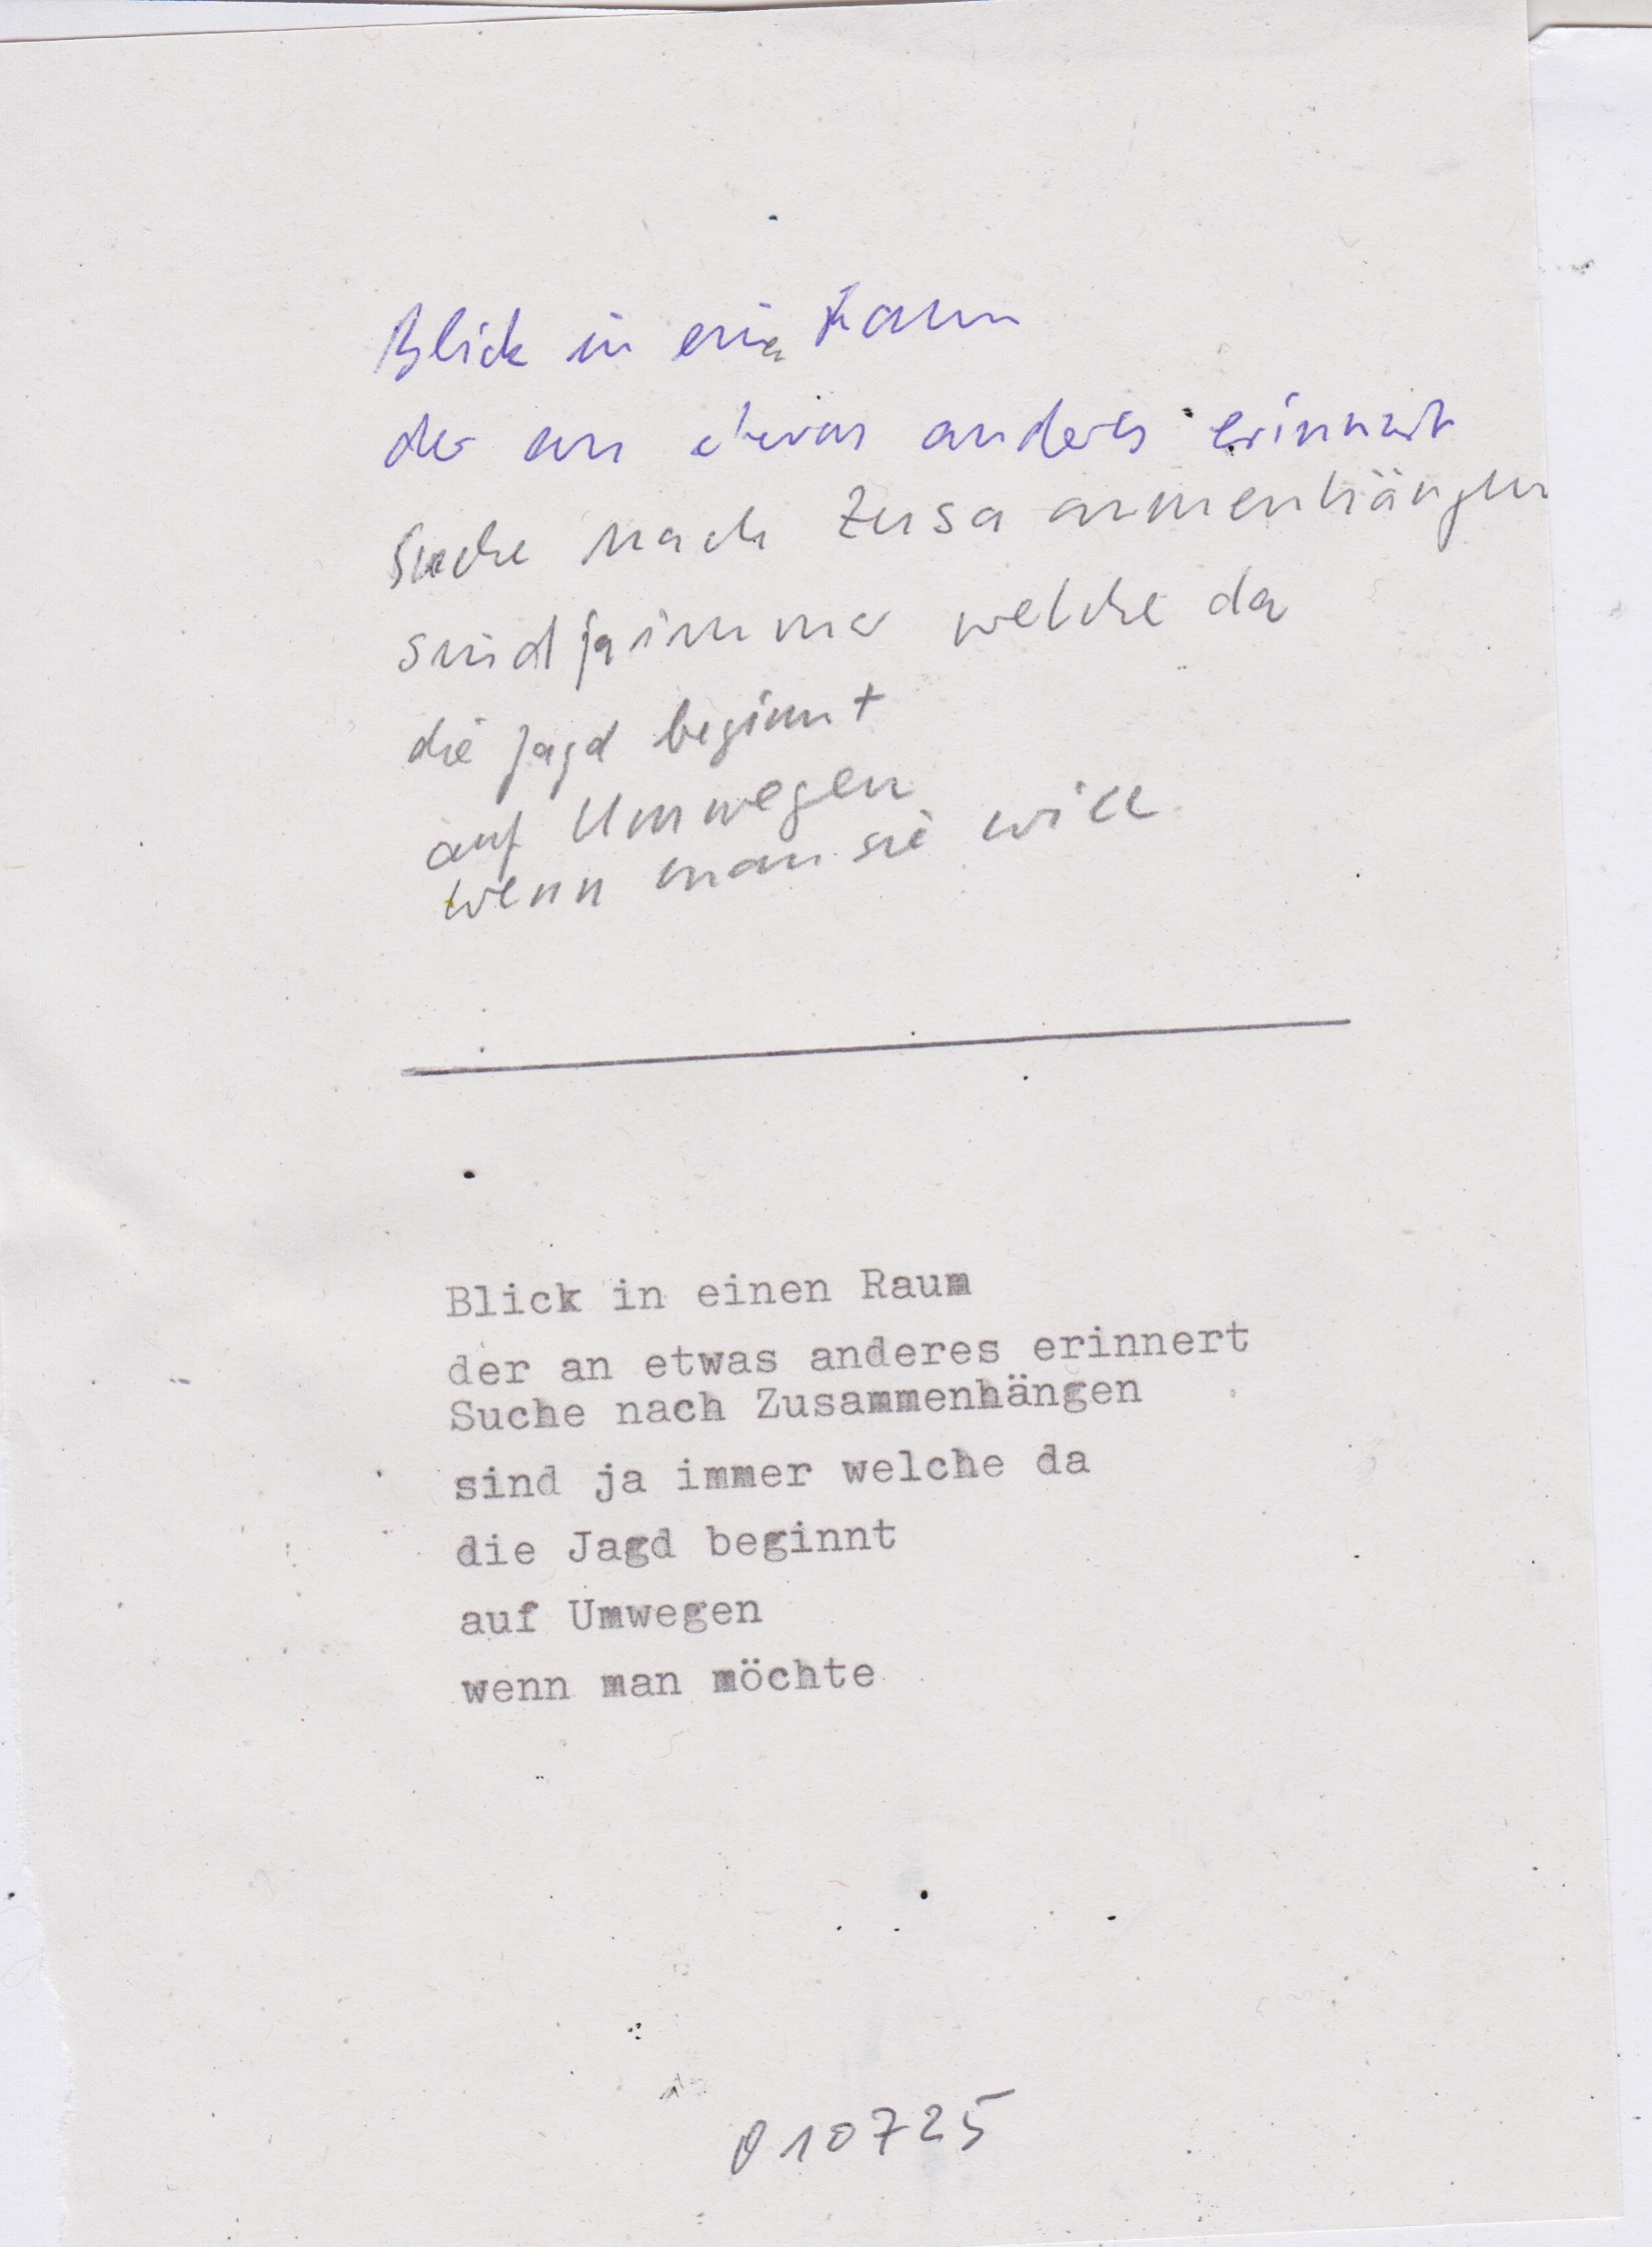 Blick in ein Raum
der an etwas anderes erinnert
Suche nach Zusa ammenhängen
sind ja immer welche da
die Jagd beginnt
auf Umwegen
wenn man sie will
Blick in einen Raum
der an etwas anderes erinnert
Suche nach Zusammenhängen
sind ja immer welche da
die Jagd beginnt
auf Umwegen
wenn man möchte
010725